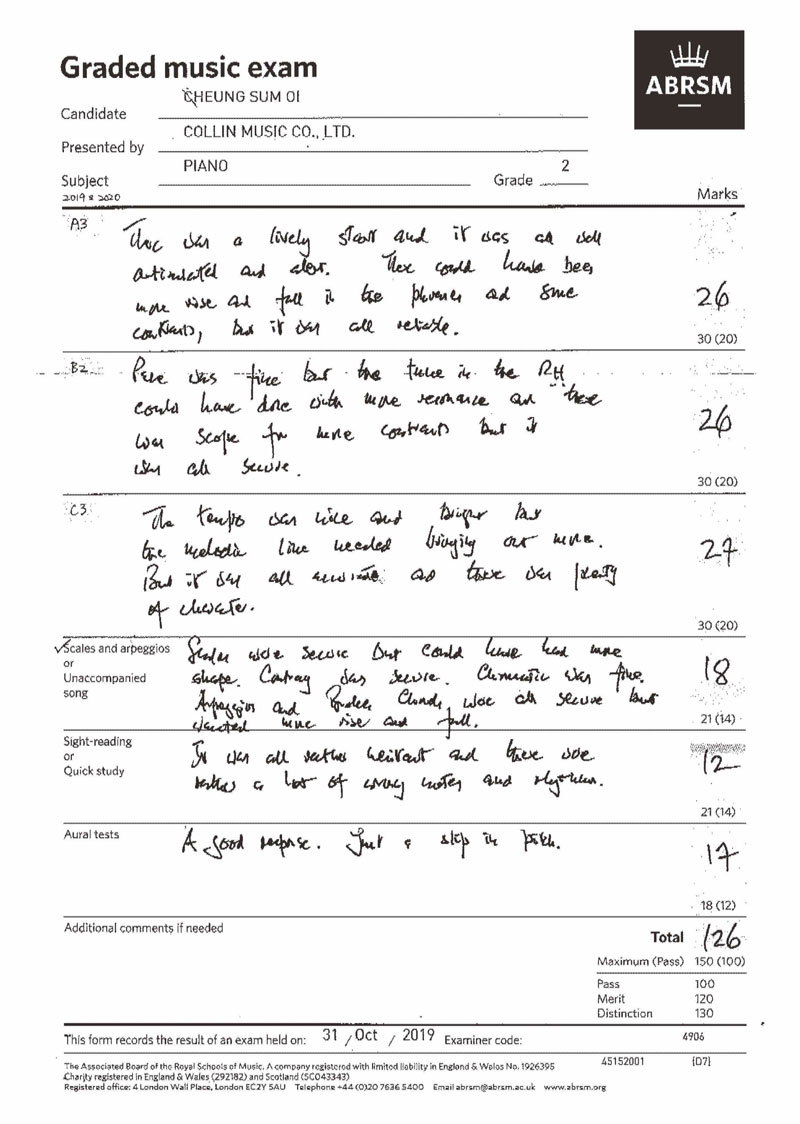 Graded music exam
ABRSM
Candidate CHEUNG SUM OI
Presented by COLLIN MUSIC CO., LTD.
Subject PIANO Grade 2
2019 & 2020 Marks
A3 There was a lively start and it was all well
articulated and alert. There could have been
more rise and fall in the phrases and some 26
contrasts, but it was all reliable. 30 (20)
B2 Pace was fine but the tune in the RH
could have done with more resonance and there
was scope for more contrasts but it 26
was all secure.
30 (20)
C3 The tempo was nice and bright but
the melodic line needed bringing out more. 27
But it was all accurate and there was plenty
of character.
30 (20)
Scales and arpeggios Scales were secure but could have had more
or shape. Contrary was secure. Chromatic was fine. 18
Unaccompanied Arpeggios and Broken Chords were all secure but
song wanted more rise and fall. 21 (14)
Sight-reading It was all rather hesitant and there were
or rather a lot of wrong notes and rhythms. 12
Quick study
21 (14)
Aural tests A good response. Just a slip in pitch. 17
18 (12)
Additional comments if needed
Total 126
Maximum (Pass) 150 (100)
Pass 100
Merit 120
Distinction 130
This form records the result of an exam held on: 31 / Oct / 2019 Examiner code: 4906
45152001 (D7)
The Associated Board of the Royal Schools of Music. A company registered with limited liability in England & Wales No. 1926395
Charity registered in England & Wales (292182) and Scotland (SC043343)
Registered office: 4 London Wall Place, London EC2Y 5AU Telephone +44 (0)20 7636 5400 Email abrsm@abrsm.ac.uk www.abrsm.org